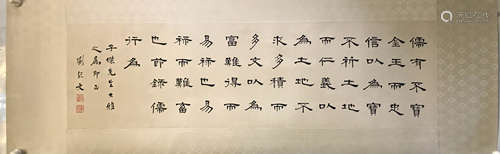 儒有不寶
金玉而忠
信以為寶
不祈土地
而仁義以
為土地不
求多積而
多文以為
富難得而
易祿也易
祿而難畜
也節錄儒
行為
子傑先生大雅
之屬即正
劉紀文